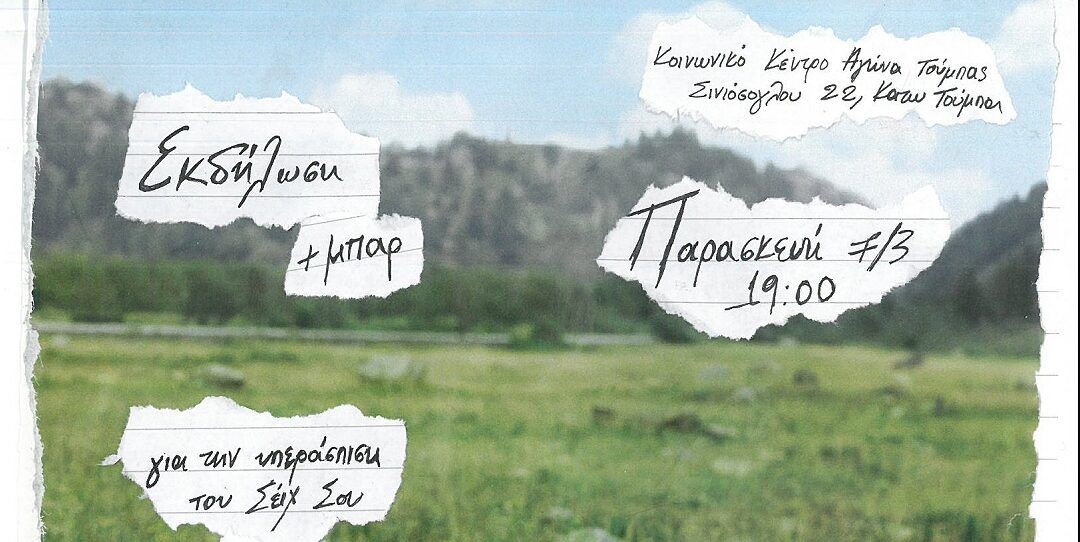 Κοινωνικό Κέντρο Αγώνα Τούμπας
Σινιόσογλου 22, Κατω Τούμπα
Εκδήλωση
+ μπαρ
Παρασκευή 7/3
19:00
για την υπεράσπιση
του Σέιχ Σου